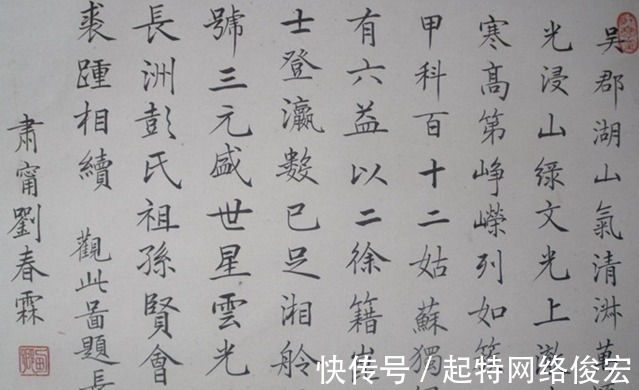 吳郡湖山氣清淑
光浸山綠文光上
寒高第崢嶸列如
甲科百十二姑蘇獨
有六益以二徐籍
士登瀛數已足湘舲
號三元盛世星雲光
長洲彭氏祖孫賢會
裘踵相續 觀此啚題長
肅甯劉春霖
快传号 / 起特网络俊宏